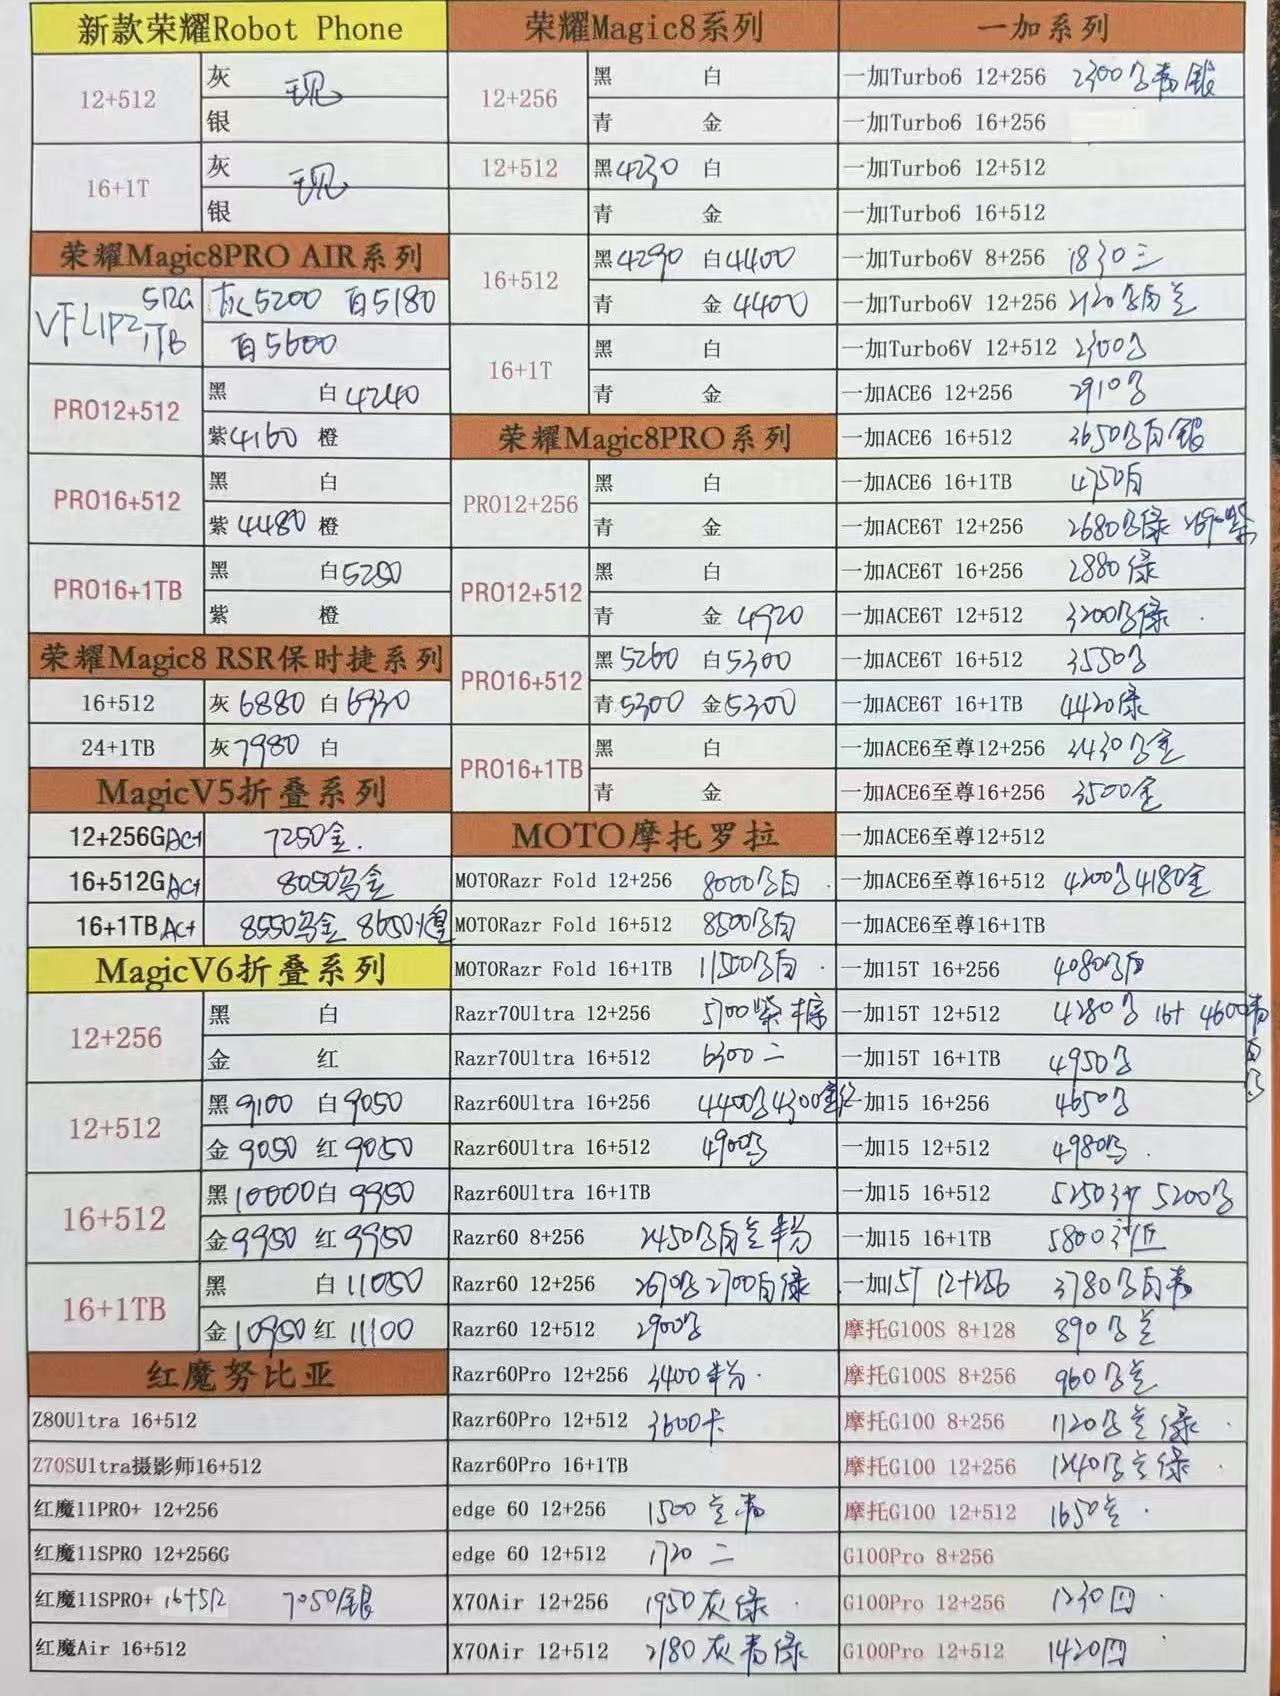 新款荣耀Robot Phone
12+512
灰 现
银
16+1T
灰 现
银
荣耀Magic8PRO AIR系列
VFLIP2 512G 灰5200 白5180
1TB 白5600
PRO12+512
黑 白4240
紫4160 橙
PRO16+512
黑 白
紫4480 橙
PRO16+1TB
黑 白5250
紫 橙
荣耀Magic8 RSR保时捷系列
16+512 灰6880 白6930
24+1TB 灰7980 白
MagicV5折叠系列
12+256GAct 7250金.
16+512GAct 8050乌金
16+1TBAct 8550乌金 8650煌
MagicV6折叠系列
12+256
黑 白
金 红
12+512
黑9100 白9050
金9050 红9050
16+512
黑10000白9950
金9950 红9950
16+1TB
黑 白11050
金10950红11100
红魔努比亚
Z80Ultra 16+512
Z70SUltra摄影师16+512
红魔11PRO+ 12+256
红魔11SPRO 12+256G
红魔11SPRO+ 16+512 7050银
红魔Air 16+512
荣耀Magic8系列
12+256
黑 白
青 金
12+512
黑4230 白
青 金
16+512
黑4290 白4400
青 金4400
16+1T
黑 白
青 金
荣耀Magic8PRO系列
PRO12+256
黑 白
青 金
PRO12+512
黑 白
青 金4920
PRO16+512
黑5260 白5300
青5300 金5300
PRO16+1TB
黑 白
青 金
MOTO摩托罗拉
MOTORazr Fold 12+256 8000 白
MOTORazr Fold 16+512 8500 白
MOTORazr Fold 16+1TB 11500 白
Razr70Ultra 12+256 5700紫 棕
Razr70Ultra 16+512 6300 二
Razr60Ultra 16+256 4400 4300
Razr60Ultra 16+512 4900
Razr60Ultra 16+1TB
Razr60 8+256 2450 白兰粉
Razr60 12+256 2670 2700白绿
Razr60 12+512 2900
Razr60Pro 12+256 3400粉
Razr60Pro 12+512 3600卡
Razr60Pro 16+1TB
edge 60 12+256 1500兰青
edge 60 12+512 1720 二
X70Air 12+256 1950灰绿
X70Air 12+512 2180灰青绿
一加系列
一加Turbo6 12+256 2300 青银
一加Turbo6 16+256
一加Turbo6 12+512
一加Turbo6 16+512
一加Turbo6V 8+256 1830三
一加Turbo6V 12+256 2120 白兰
一加Turbo6V 12+512 2300
一加ACE6 12+256 2910
一加ACE6 16+512 3650 白银
一加ACE6 16+1TB 4750白
一加ACE6T 12+256 2680 绿 2690紫
一加ACE6T 16+256 2880绿
一加ACE6T 12+512 3200 绿
一加ACE6T 16+512 3550
一加ACE6T 16+1TB 4420绿
一加ACE6至尊12+256 3430 金
一加ACE6至尊16+256 3500金
一加ACE6至尊12+512
一加ACE6至尊16+512 4200 4180金
一加ACE6至尊16+1TB
一加15T 16+256 4080 白
一加15T 12+512 4280 16+ 4600青白
一加15T 16+1TB 4950
一加15 16+256 4650
一加15 12+512 4980
一加15 16+512 5250 5200
一加15 16+1TB 5800
一加15T 12+256 3780 白青
摩托G100S 8+128 890 兰
摩托G100S 8+256 960 兰
摩托G100 8+256 1120 兰绿
摩托G100 12+256 1240 兰绿
摩托G100 12+512 1650兰
G100Pro 8+256
G100Pro 12+256 1230四
G100Pro 12+512 1420四